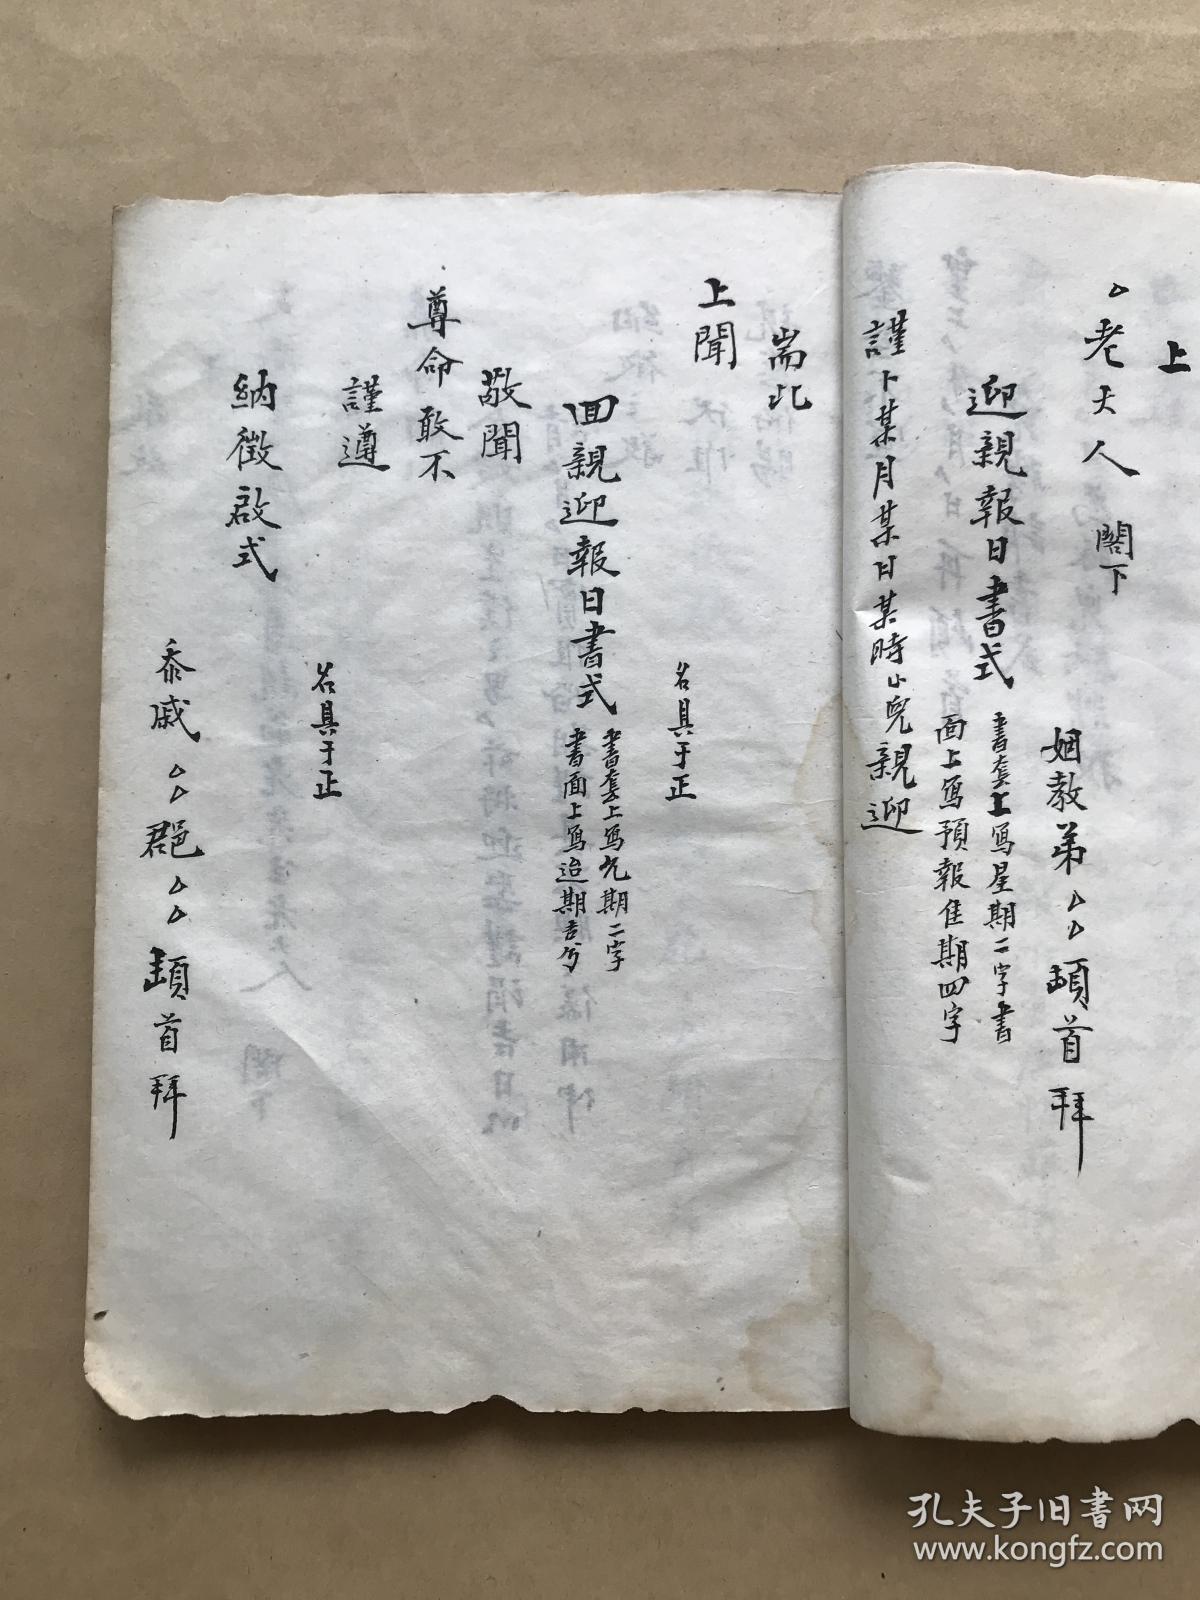 上
老大人 閣下
姻教弟 頓首拜
迎親報日書式 書套上寫星期二字書
面上寫預報佳期四字
謹卜某月某日某時小兒親迎
耑此
上聞
名具于正
回親迎報日書式 書套上寫允期二字
書面上寫迨期吉兮
敬聞
尊命敢不
謹遵
名具于正
納徵啟式
忝戚 邑 頓首拜
孔夫子旧书网
www.kongfz.com